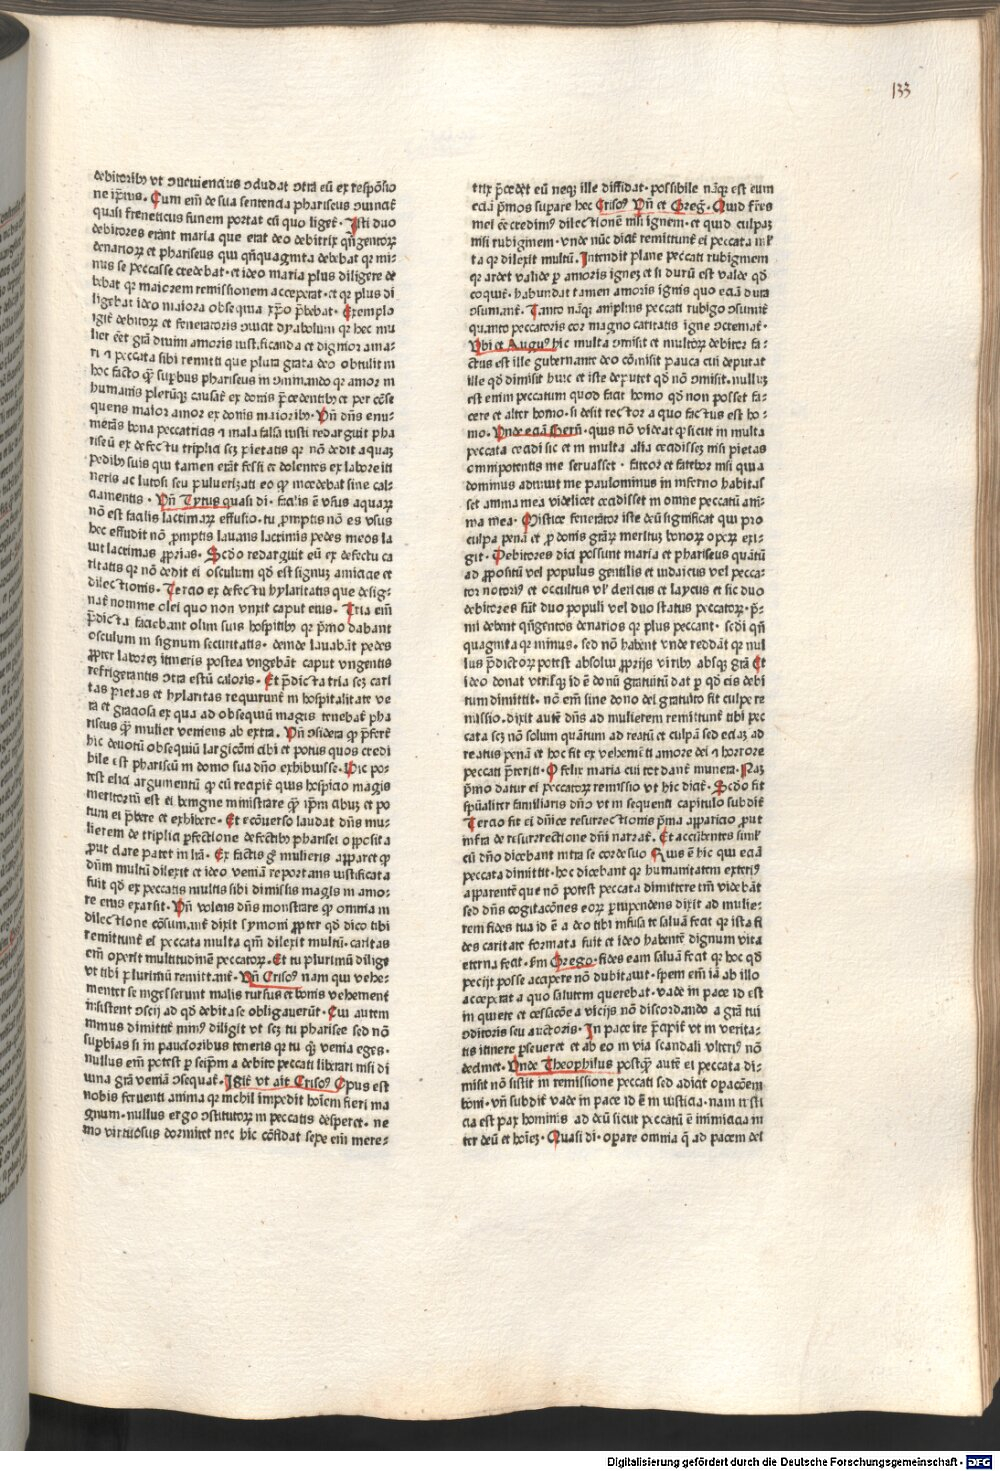 133
debitorib9 vt ɔueniencius ɔdudat ɔtra eū ex respōsio
ne ip̄ius. Cum em̄ de sua sentencia phariseus ɔuincit̄
quasi freneticus funem portat cū quo liget̄. Isti duo
debitores erant maria que erat deo debitrix qn̄gentorꝝ
denariorꝝ et phariseus qui qn̄quaginta debebat qr mi-
nus se peccasse credebat. et ideo maria plus diligere de
bebat qr maiorem remissionem acceperat. et qr plus di
ligebat ideo maiora obsequia xp̄o p̄bebat. Exemplo
igit̄ debitorꝝ et feneratoris ɔuicit dyabolum qr hec mu
lier eēt grā diuini amoris iustificanda et dignior ama-
ri ⁊ peccata sibi remitti que plura grata deo obtulit in
hoc facto qꝫ suꝑbus phariseus in ɔmmando qr amor in
humanis plerūqꝫ causat̄ ex donis p̄cedentib9 et per cōse
quens maior amor ex donis maiorib9. Vn̄ dn̄s enu-
merās bona peccatricis ⁊ mala falsa iusti redarguit pha
riseū ex defectu triplicis seꝫ pietatis qr nō dedit aquaꝫ
pedib9 suis qui tamen erāt fessi et dolentes ex labore iti
neris ac lutosi seu puluerizati eo qꝫ incedebat sine cal-
ciamentis. Vn̄ Tytus quasi di. facilis ē vsus aquarꝝ
nō est facilis lacrimarꝝ effusio. tu ꝓmptis nō es vsus
hec effudit nō ꝓmptis lauans lacrimis pedes meos la
uit lacrimas ꝓprias. Scdo redarguit eū ex defectu ca
ritatis qr nō dedit ei osculum qd est signuꝫ amicicie et
dilectionis. Tercio ex defectu hylaritatis que desig-
nat̄ nomine olei quo non vnxit caput eius. Tria em̄
p̄dicta faciebant olim suis hospitib9 qr p̄mo dabant
osculum in signum securitatis. deinde lauabāt pedes
ꝓpter laboreꝫ itineris postea vngebāt caput vngentis
refrigerantis ɔtra estū caloris. Et p̄dicta tria seꝫ cari
tas pietas et hylaritas requirunt̄ in hospitalitate ve
ra et graciosa ex qua ad obsequiū magis tenebat̄ pha
riseus qꝫ mulier veniens ab extra. Vn̄ ɔsidera qꝫ p̄fert̄
hic deuotū obsequiū largicōni cibi et potus quos credi
bile est phariseū in domo sua dn̄o exhibuisse. Hic po-
test elici argumentū qꝫ cū recipit̄ quis hospicio magis
meritoriū est ei benigne ministrare qꝫ ip̄m cibuꝫ et po
tum ei p̄bere et exhibere. Et ecōuerso laudat dn̄s mu-
lierem de triplici ꝑfectione defectib9 pharisei opposita
ꝓut clare patet in lrā. Ex factis gͦ mulieris apparet qꝫ
dn̄m multū dilexit et ideo veniā reportans iustificata
fuit qd ex peccatis multis sibi dimissis magis in amo-
re eius exarsit. Vn̄ volens dn̄s monstrare qꝫ omnia in
dilectione cōsum.ant̄ dixit symoni ꝓpter qd dico tibi
remittunt̄ ei peccata multa qm̄ dilexit multū. caritas
em̄ operit multitudinē peccatorꝝ. Et tu plurimū dilige
vt tibi plurimū remittant̄. Vn̄ Crisos9 nam qui vehe-
menter se ingesserunt malis rursus et bonis vehement̄
insistent ɔscij ad qd debita se obligauerūt. Cui autem
minus dimittit̄ min9 diligit vt seꝫ tu pharisee sed nō
suꝑbias si in paucioribus teneris qr tu qꝫ venia eges.
nullus em̄ potest ꝑ seip̄m a debito peccati liberari nisi di
uina grā veniā ɔsequat̄. Igit̄ vt ait Crisos9 Opus est
nobis feruenti anima qr nichil impedit hoīem fieri ma
gnum. nullus ergo ɔstitutorꝝ in peccatis desperet. ne
mo virtuosus dormitet nec hic cōfidat sepe em̄ mere-
trix p̄cedet eū neqꝫ ille diffidat. possibile nāqꝫ est eum
eciā p̄mos suꝑare hec Crisos9 Vn̄ et Greg. Quid fr̄es
mei eē credim9 dilectionē nisi ignem. et quid culpaꝫ
nisi rubiginem. vnde nūc dicit̄ remittunt̄ ei peccata ml̄
ta qr dilexit multū. Intendit plane peccati rubiginem
qr ardet valide ꝑ amoris igneꝫ et si durū est valde qd
coquit̄. habundat tamen amoris ignis quo eciā dura
ɔsumant̄. Tanto nāqꝫ amplius peccati rubigo ɔsumit̄
quanto peccatoris cor magno caritatis igne ɔcremat̄.
Vbi et August9 hic multa ɔmisit et multorꝝ debitor fa-
ctus est ille gubernante deo cōmisit pauca cui deputat
ille qd dimisit huic et iste deputet qd nō ɔmisit. nulluꝫ
est enim peccatum quod facit homo qd non posset fa-
cere et alter homo. si desit rector a quo factus est ho-
mo. Vnde eciā Bern̄. quis nō videat qꝫ sicut in multa
peccata cecidi sic et in multa alia cecidisseꝫ nisi pietas
omnipotentis me seruasset. fateor et fatebor nisi quia
dominus adiuuit me paulominus in inferno habitas
set anima mea videlicet cecidisset in omne peccatū ani-
ma mea. Mistice fenerator iste deū significat qui pro
culpa penā et ꝑ donis grārꝝ merituꝫ bonorꝝ operꝝ exi-
git. Debitores dici possunt maria et phariseus quātū
ad ꝓpositū vel populus gentilis et iudaicus vel pecca-
tor notori9 et occultus vl̄ clericus et laycus et sic duo
debitores sūt duo populi vel duo status peccatorꝝ. p̄-
mi debent qn̄gentos denarios qr plus peccant. scdi qn̄
quaginta qr minus. sed nō habent vnde reddāt qr nul
lus p̄dictorꝝ potest absolui ꝓprijs virib9 absqꝫ grā Et
ideo donat vtrisqꝫ id ē donū gratuitū dat ꝑ qd eis debi
tum dimittit. nō em̄ sine dono dei gratuito fit culpe re
missio. dixit autē dn̄s ad mulierem remittunt̄ tibi pec
cata seꝫ nō solum quātum ad reatū et culpā sed eciaꝫ ad
reatus penā et hoc fit ex vehemēti amore dei ⁊ horrore
peccati p̄teriti. O felix maria cui tot dant̄ munera. Naꝫ
p̄mo datur ei peccatorꝝ remissio vt hic dicit̄. Scdo fit
sp̄ualiter familiaris dn̄o vt in sequenti capitulo subdit̄
Tercio fit ei dn̄ice resurrectionis p̄ma apparicio ꝓut
infra de resurrectione dn̄i narrat̄. Et accūbentes siml̄
cū dn̄o dicebant intra se corde suo Quis ē hic qui eciā
peccata dimittit. hoc dicebant qr humanitatem exteri9
apparentē que nō potest peccata dimittere tm̄ videbāt
sed dn̄s cogitacōnes eorꝝ ꝑmpendens dixit ad mulie-
rem fides tua id ē a deo tibi infusa te saluā fecit qr ista fi
des caritate formata fuit et ideo habentē dignum vita
eterna fecit. sm̄ Grego. fides eam saluā fecit qr hoc qd
pecijt posse accipere nō dubitauit. spem em̄ iā ab illo
acceperat a quo salutem querebat. vade in pace id est
in quiete et cessacōe a vicijs nō discordando a grā tui
ɔditoris seu auctoris. In pace ire p̄cepit̄ vt in verita-
tis itinere ꝑseueret et ab eo in via scandali vlteri9 nō
declinet. Vnde Theophilus postqꝫ autē ei peccata di-
misit nō sistit in remissione peccati sed adicit opacōem
boni. vn̄ subdit̄ vade in pace id ē in iusticia. nam iusti
cia est pax hominis ad deū sicut peccatū ē inimicicia in
ter deū et hoīeꝫ. Quasi di. operare omnia q̄ ad pacem dei
Digitalisierung gefördert durch die Deutsche Forschungsgemeinschaft - DFG